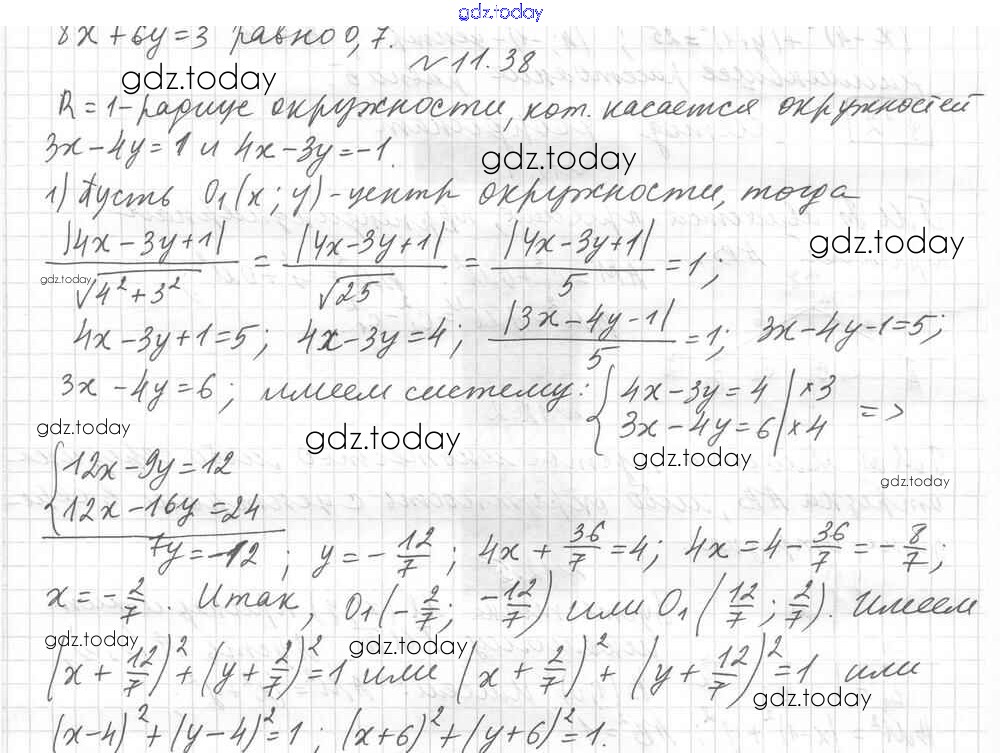 gdz.today
8x + 6y = 3 равно 0,7.
№ 11.38
gdz.today
R = 1 - радиус окружности, кот. касается окружностей
3x - 4y = 1 и 4x - 3y = -1.
gdz.today
1) Пусть O₁(x; y) - центр окружности, тогда
|4x - 3y + 1| / √(4² + 3²) = |4x - 3y + 1| / √25 = |4x - 3y + 1| / 5 = 1;
gdz.today
gdz.today
4x - 3y + 1 = 5; 4x - 3y = 4; |3x - 4y - 1| / 5 = 1; 3x - 4y - 1 = 5;
3x - 4y = 6; имеем систему: { 4x - 3y = 4 | × 3
3x - 4y = 6 | × 4 =>
gdz.today
gdz.today
gdz.today
gdz.today
{ 12x - 9y = 12
12x - 16y = 24
7y = -12; y = -12/7; 4x + 36/7 = 4; 4x = 4 - 36/7 = -8/7;
x = -2/7. Итак, O₁(-2/7; -12/7) или O₁(12/7; 2/7). Имеем
gdz.today
gdz.today
(x + 12/7)² + (y + 2/7)² = 1 или (x + 2/7)² + (y + 12/7)² = 1 или
gdz.today
(x - 4)² + (y - 4)² = 1; (x + 6)² + (y + 6)² = 1.